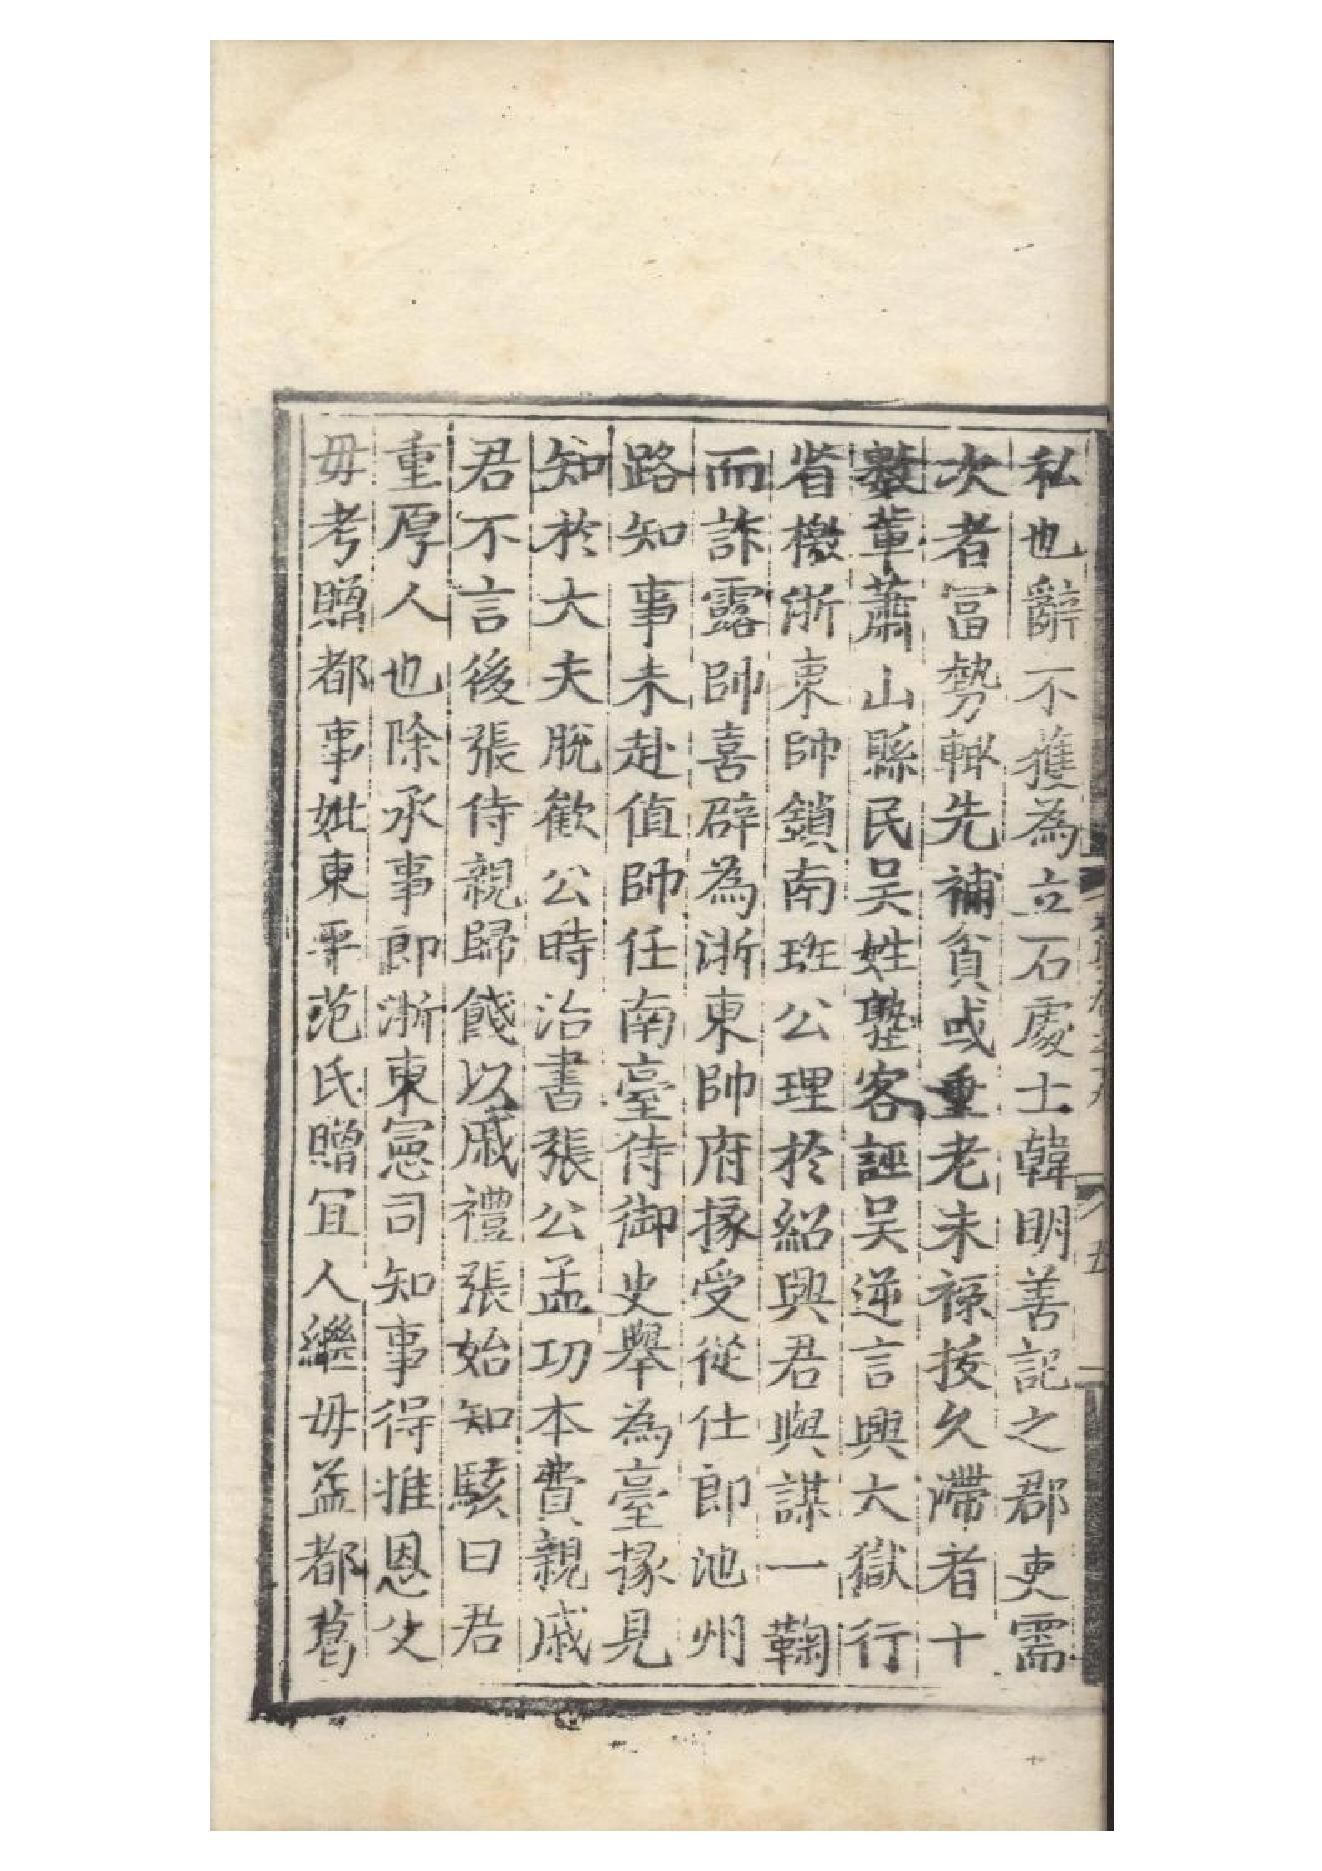 私也辭不獲為立石處士韓明善記之郡吏需
次者富勢輙先補貧或重老未祿授久滯者十
數軰蕭山縣民吳姓塾客誣吳逆言興大獄行
省檄浙東帥鎖南班公理於紹興君與謀一鞠
而詐露帥喜辟為浙東帥府掾受從仕郎池州
路知事未赴值帥任南臺侍御史舉為臺掾見
知於大夫脫歡公時治書張公孟功本費親戚
君不言後張侍親歸餞以戚禮張始知駭曰君
重厚人也除承事郎浙東憲司知事得推恩父
毋考贈都事妣東平范氏贈冝人繼毋益都葛